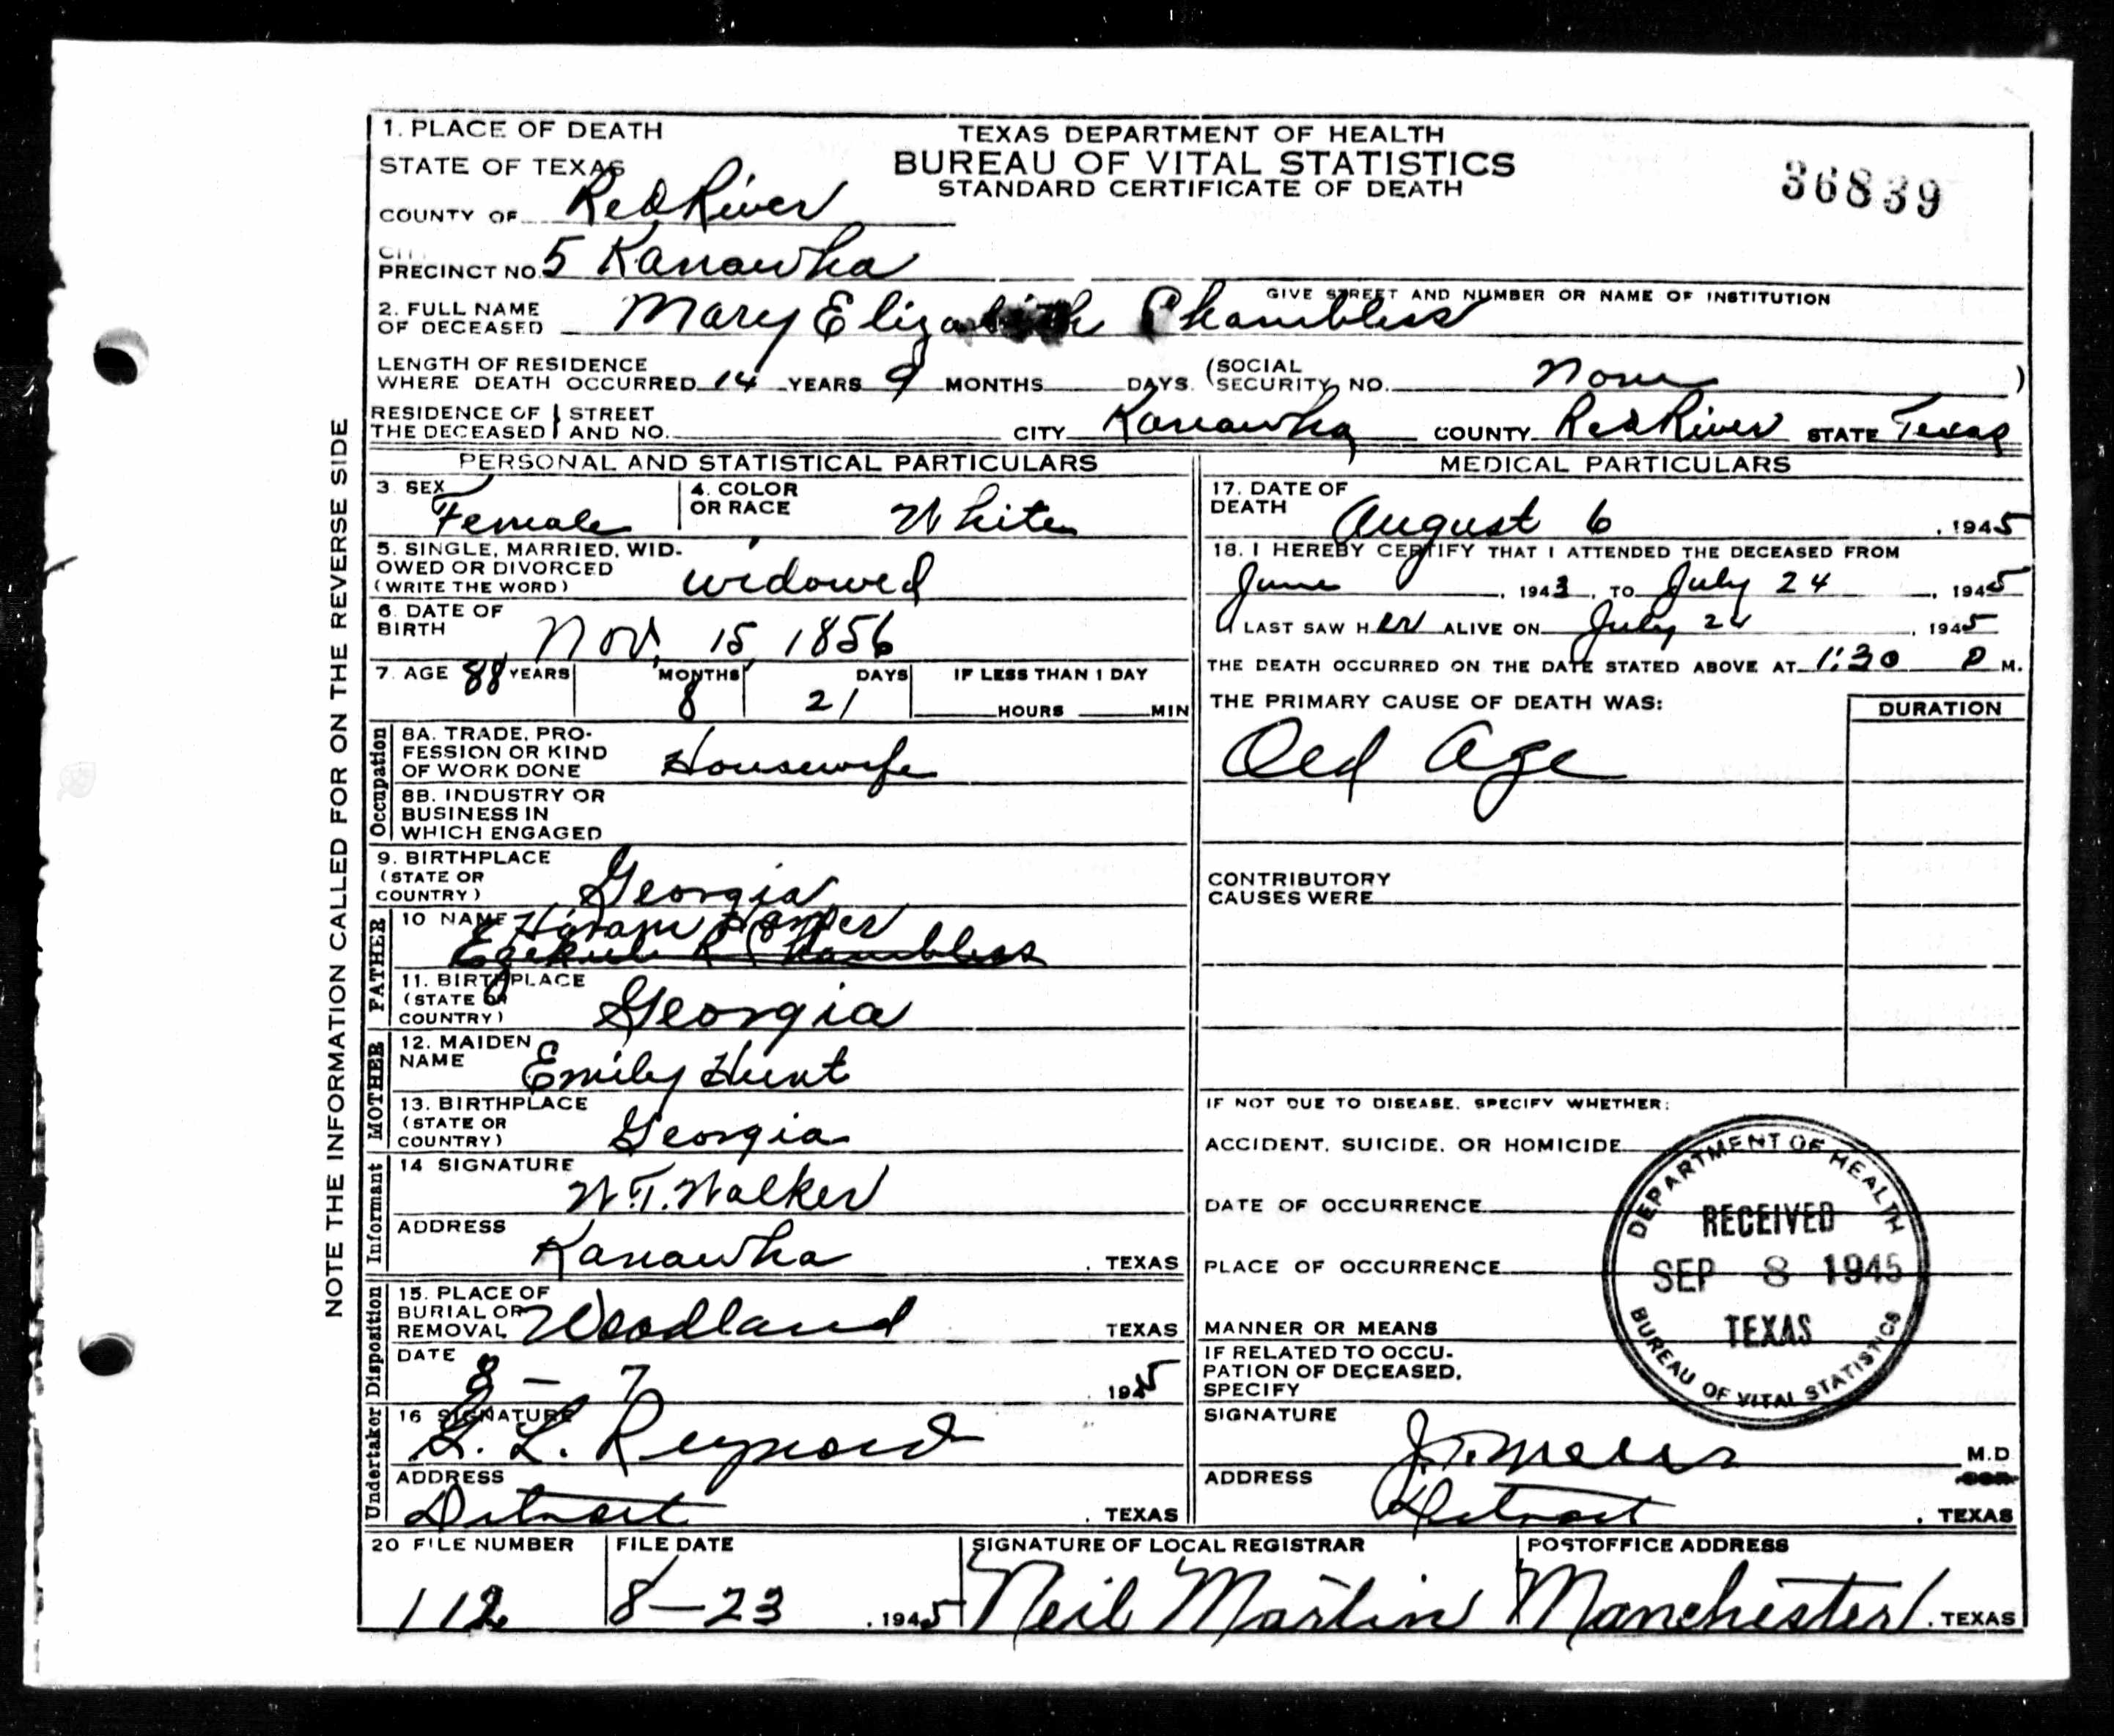 1. PLACE OF DEATH
STATE OF TEXAS
COUNTY OF Red River
PRECINCT NO. 5 Kanawha
TEXAS DEPARTMENT OF HEALTH
BUREAU OF VITAL STATISTICS
STANDARD CERTIFICATE OF DEATH
36839
GIVE STREET AND NUMBER OR NAME OF INSTITUTION
2. FULL NAME
OF DECEASED Mary Elizabeth Chambless
LENGTH OF RESIDENCE
WHERE DEATH OCCURRED 14 YEARS 9 MONTHS DAYS. (SOCIAL SECURITY NO. None )
RESIDENCE OF THE DECEASED STREET AND NO. CITY Kanawha COUNTY Red River STATE Texas
NOTE THE INFORMATION CALLED FOR ON THE REVERSE SIDE
PERSONAL AND STATISTICAL PARTICULARS
3. SEX Female
4. COLOR OR RACE White
5. SINGLE, MARRIED, WID-
OWED OR DIVORCED
(WRITE THE WORD) widowed
6. DATE OF
BIRTH Nov. 15 1856
7. AGE 88 YEARS 8 MONTHS 21 DAYS IF LESS THAN 1 DAY HOURS MIN
Occupation
8A. TRADE, PRO-
FESSION OR KIND
OF WORK DONE Housewife
8B. INDUSTRY OR
BUSINESS IN
WHICH ENGAGED
9. BIRTHPLACE
(STATE OR
COUNTRY) Georgia
FATHER
10 NAME Hiram Harper
Ezekiel R Chambless
11. BIRTHPLACE
(STATE OR
COUNTRY) Georgia
MOTHER
12. MAIDEN
NAME Emily Hunt
13. BIRTHPLACE
(STATE OR
COUNTRY) Georgia
Informant
14 SIGNATURE W.T. Walker
ADDRESS Kanawha . TEXAS
Disposition
15. PLACE OF
BURIAL OR
REMOVAL Woodland TEXAS
DATE 8 - 7 1945
Undertaker
16 SIGNATURE G. L. Reynolds
ADDRESS Detroit . TEXAS
MEDICAL PARTICULARS
17. DATE OF
DEATH August 6 , 1945
18. I HEREBY CERTIFY THAT I ATTENDED THE DECEASED FROM
June , 1943, TO July 24 , 1945
I LAST SAW HER ALIVE ON July 24 , 1945
THE DEATH OCCURRED ON THE DATE STATED ABOVE AT 1:30 P M.
THE PRIMARY CAUSE OF DEATH WAS: DURATION
Old Age
CONTRIBUTORY
CAUSES WERE
IF NOT DUE TO DISEASE, SPECIFY WHETHER:
ACCIDENT, SUICIDE, OR HOMICIDE
DATE OF OCCURRENCE
PLACE OF OCCURRENCE
MANNER OR MEANS
IF RELATED TO OCCU-
PATION OF DECEASED,
SPECIFY
DEPARTMENT OF HEALTH
RECEIVED
SEP 8 1945
TEXAS
BUREAU OF VITAL STATISTICS
SIGNATURE M.D
ADDRESS Detroit . TEXAS
20 FILE NUMBER 112
FILE DATE 8-23 , 1945
SIGNATURE OF LOCAL REGISTRAR Neil Martin
POSTOFFICE ADDRESS Manchester . TEXAS